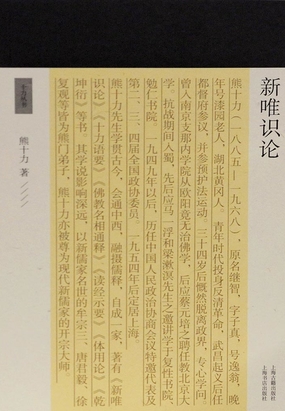 新唯识论
十力丛书
熊十力 著
熊十力（一八八五—一九六八），原名继智，字子真，号逸翁，晚
年号漆园老人，湖北黄冈人。青年时代投身反清革命，武昌起义后任
都督府参议，并参预护法运动。三十四岁后慨然脱离政界，专心学问，
曾入南京支那内学院从欧阳竟无治佛学，后应蔡元培之聘任教北京大
学。抗战期间入蜀，先后应马一浮和梁漱溟先生之邀讲学于复性书院、
勉仁书院。一九四九年以后，历任中国人民政治协商会议特邀代表及
第二、三、四届全国政协委员。一九五四年后定居上海。
熊十力先生学贯古今，会通中西，融摄儒释，自成一家，著有《新唯
识论》《十力语要》《佛教名相通释》《读经示要》《体用论》《乾
坤衍》等书。其学说影响深远，以新儒家名世的牟宗三、唐君毅、徐
复观等皆为熊门弟子，熊十力亦被尊为现代新儒家的开宗大师
上海古籍出版社
上海书店出版社